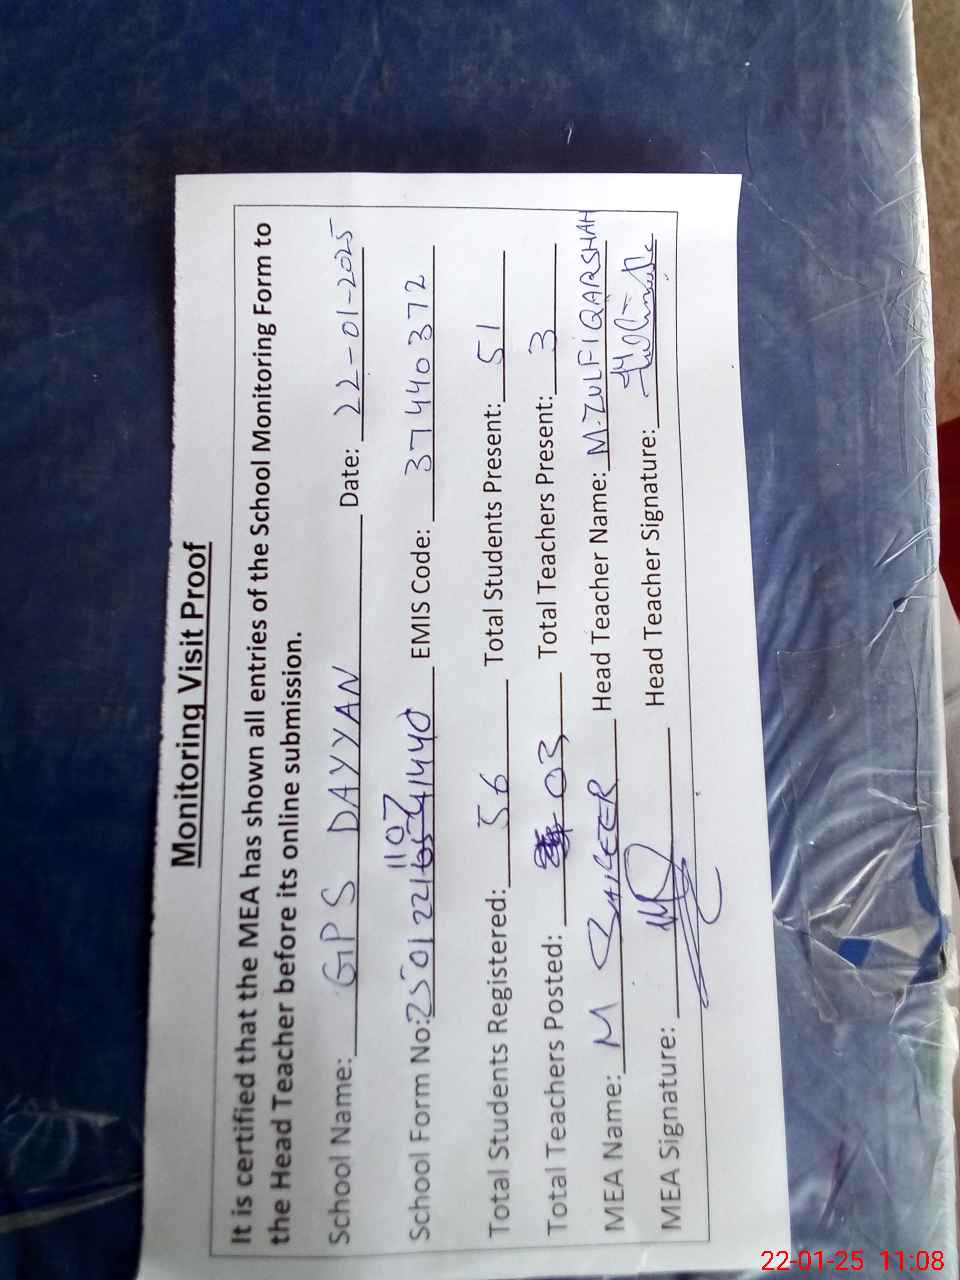 Monitoring Visit Proof
It is certified that the MEA has shown all entries of the School Monitoring Form to
the Head Teacher before its online submission.
School Name: GPS DAYYAN Date: 22-01-2025
School Form No: EMIS Code: 37440372
Total Students Registered: 56 Total Students Present: 51
Total Teachers Posted: 03 Total Teachers Present: 3
MEA Name: M Head Teacher Name: M. ZULFIQARSHAH
MEA Signature: Head Teacher Signature:
22-01-25 11:08